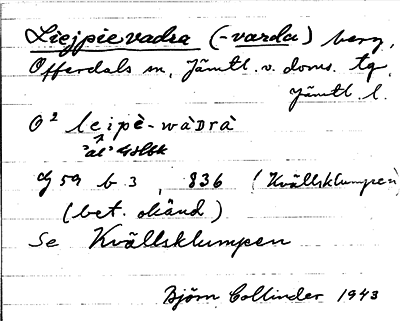 Liejpievadsa (-varda) berg,
Offerdals sn, Jämtl. v. doms. tg,
Jämtl. l.
O² leipè-wàDrà
"al"
G 59 b 3, 836 (Kvällsklumpen)
(bet. okänd)
Se Kvällsklumpen
Björn Collinder 1943